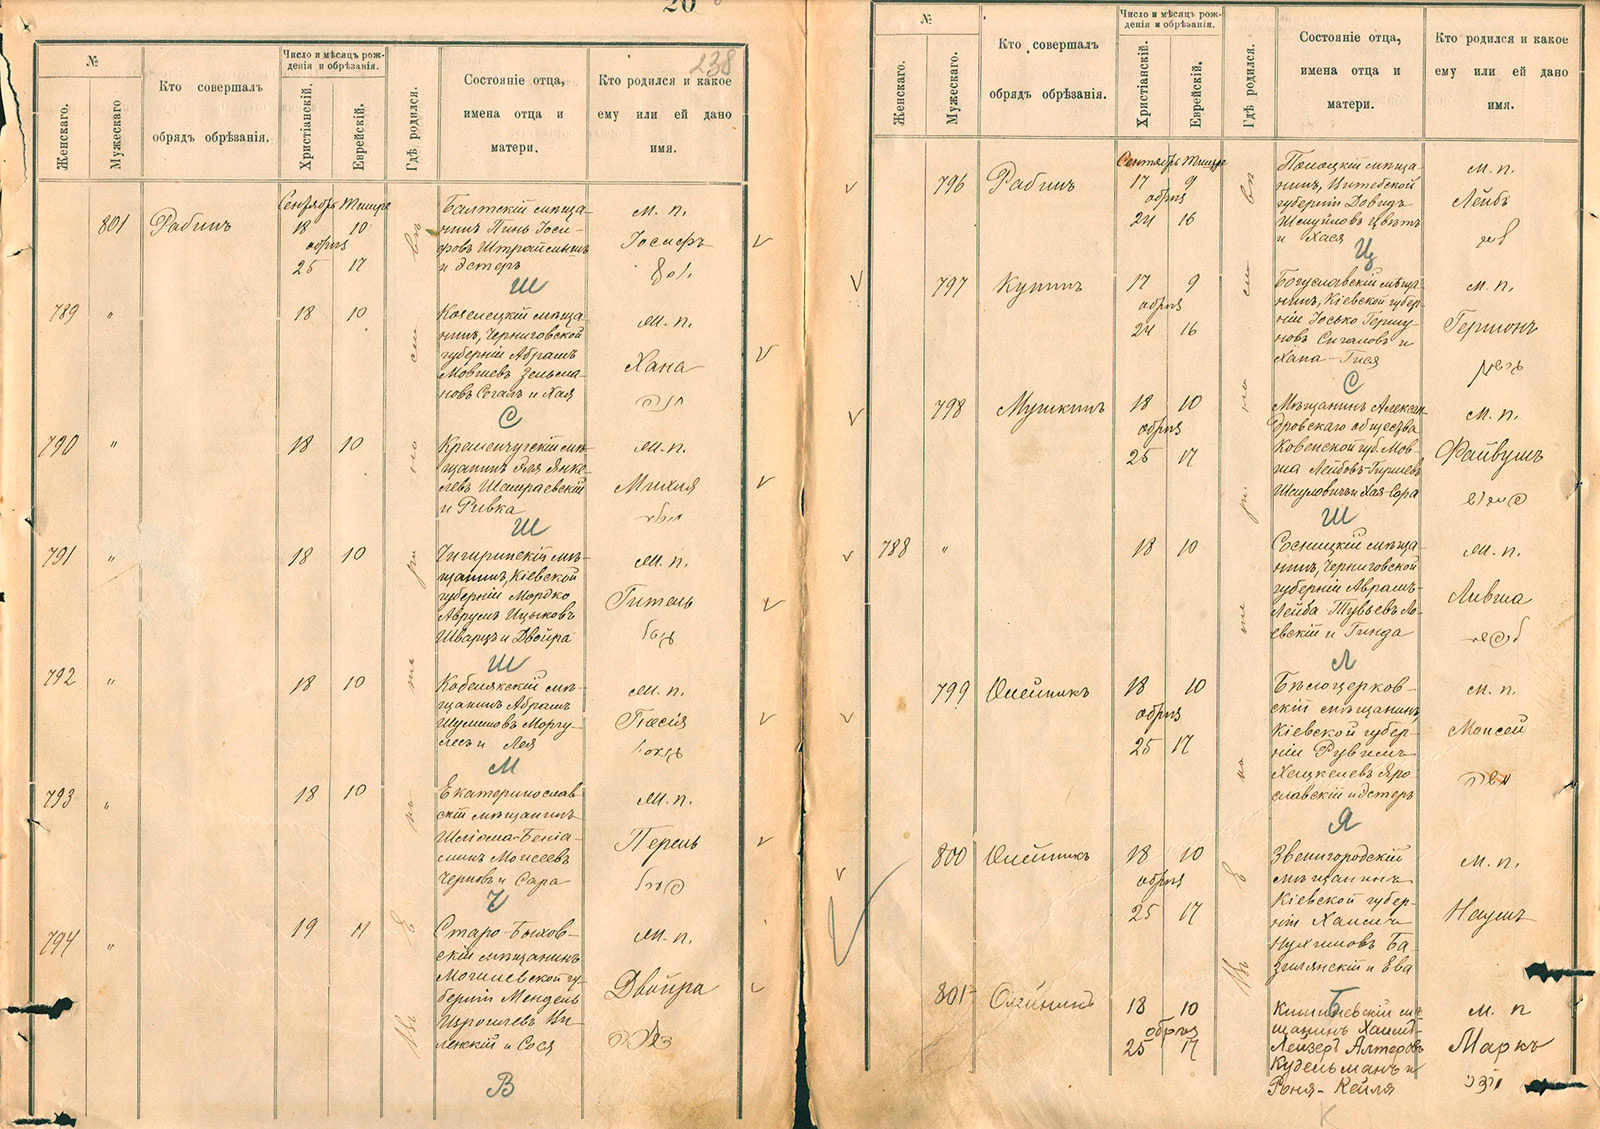 20
238
№
Женскаго.
Мужескаго
Кто совершалъ
обрядъ обрѣзанія.
Число и мѣсяцъ рож-
денія и обрѣзанія.
Христіанскій.
Еврейскій.
Гдѣ родился.
Состояніе отца,
имена отца и
матери.
Кто родился и какое
ему или ей дано
имя.
Сентябрь Тишре
801 Рабинъ 18 10
обрѣз
25 17
Балтскій мѣща-
нинъ Пинь Іоси-
фовъ
и Эстеръ
м. п.
Іосифъ
Ш
789 " 18 10
Козелецкій мѣща-
нинъ, Черниговской
губерніи Абрамъ
Мовшевъ Зельма-
новъ Сегалъ и Хая
м. п.
Хана
חנה
С
790 " 18 10
Кременчугскій мѣ-
щанинъ Эля Янке-
левъ
и Ривка
м. п.
Михля
Ш
791 " 18 10
Чигиринскій мѣ-
щанинъ, Кіевской
губерніи Мордко
Аврумъ Ицыковъ
Шварцъ и Двойра
м. п.
Гитель
Ш
792 " 18 10
Кобелякскій мѣ-
щанинъ Абрамъ
Шулимовъ Маргу-
лесъ и Лея
м. п.
М
793 " 18 10
Екатеринослав
скій мѣщанинъ
Шліома-Беніа-
минъ Моисеевъ
Черновъ и Сара
м. п.
Перель
Ч
794 " 19 11
Старо-Быхов-
скій мѣщанинъ
Могилевской гу-
берніи Мендель
Изроилевъ Ви-
ленскій и Сося
м. п.
Двойра
В
№
Женскаго.
Мужескаго.
Кто совершалъ
обрядъ обрѣзанія.
Число и мѣсяцъ рож-
денія и обрѣзанія.
Христіанскій.
Еврейскій.
Гдѣ родился.
Состояніе отца,
имена отца и
матери.
Кто родился и какое
ему или ей дано
имя.
Сентябрь Тишре
796 Рабинъ 17 9
обрѣз
24 16
Полоцкій мѣща-
нинъ, Витебской
губерніи Довидъ
Шмуйловъ Цвѣтъ
и Хася
м. п.
Лейбъ
Ц
797 Купинъ 17 9
обрѣз
24 16
Богуславскій мѣща-
нинъ, Кіевской губер-
ніи Іосько Гершу-
новъ Сигаловъ и
Хана-Гися
м. п.
Гершонъ
С
798 Мушкинъ 18 10
обрѣз
25 17
Мѣщанинъ Алексан-
дровскаго общества
Ковенской губ. Мов-
ша Лейбовъ-Гиршевъ
и Хая-Сора
м. п.
Файвушъ
Ш
788 " 18 10
Сосницкій мѣща-
нинъ, Черниговской
губерніи Аврамъ-
Лейба Тувьевъ Ло-
евскій и Гинда
м. п.
Л
799 Олейникъ 18 10
обрѣз
25 17
Бѣлоцерков-
скій мѣщанинъ,
Кіевской губер-
ніи Рувинъ
Хацкелевъ Яро-
славскій и Эстеръ
м. п.
Моисей
משה
Я
800 Олейникъ 18 10
обрѣз
25 17
Звенигородскій
мѣщанинъ
Кіевской губер-
ніи Хаимъ
Нухимовъ Ба-
зилянскій и Ева
м. п.
Наумъ
Б
801 Олейникъ 18 10
обрѣз
25 17
Кишиневскій мѣ-
щанинъ Хаимъ-
Лейзеръ Алтеровъ
Кудельманъ и
Роня-Кейля
м. п
Маркъ
К